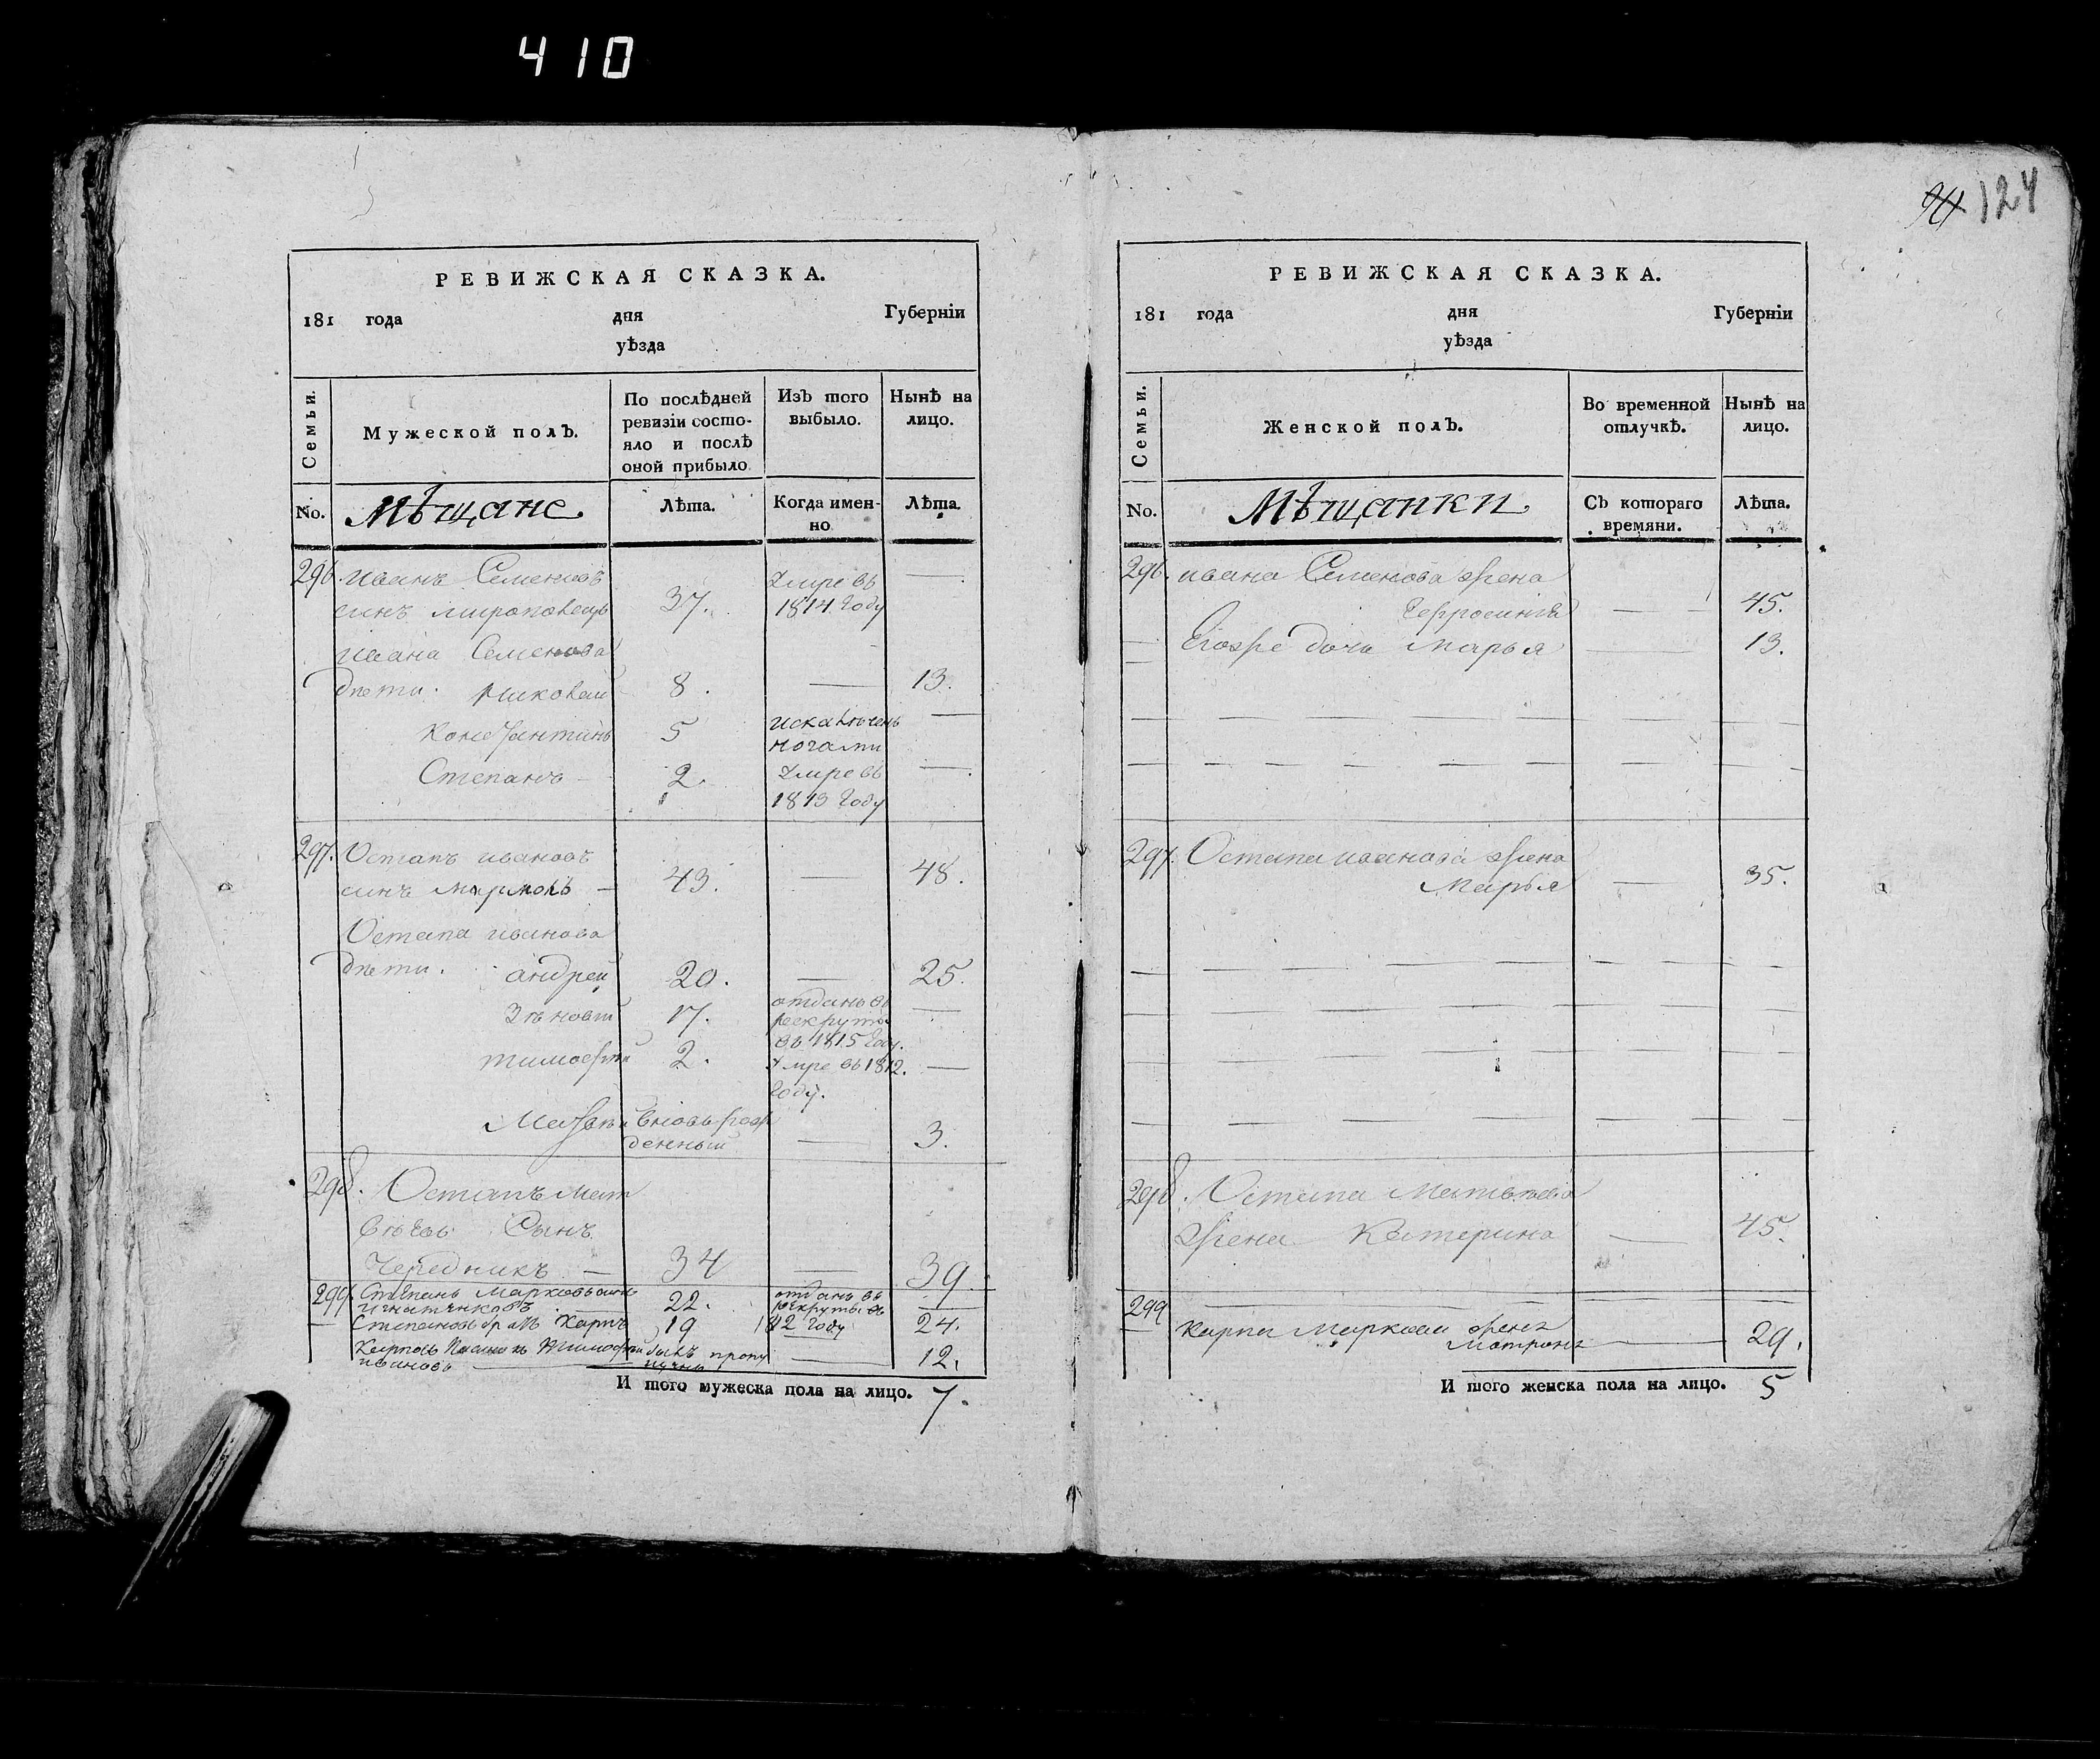 410
124
РЕВИЖСКАЯ СКАЗКА.
181 года дня Губерніи
уѣзда
Семьи.
Мужеской полъ.
По послѣдней ревизіи состо-
яло и послѣ
оной прибыло
Изъ того выбыло.
Нынѣ на лицо.
No.
Мѣщане
Лѣта.
Когда имен-
но
Лѣта.
296. иванъ Семеновъ
синъ мироповецъ 37. Умре въ 1814 Году —
ивана Семенова
дѣти. Миколай 8. — 13.
Константинъ 5 искалѣченъ ногами —
Степанъ — 2. Умре въ 1813 Году —
297. Остапъ ивановъ
синъ — 43. — 48.
Остапа иванова
дѣти. андрей 20. — 25.
Зѣновій 17. отданъ въ рекруты въ 1815 Году. —
тимофей 2. Умре въ 1812. Году. —
Матвѣй вновь рож
денный — 3.
298. Остапъ Мат
вѣевъ Сынъ
Чередникъ — 34 — 39.
299. Степанъ Марковъ синъ
22. отданъ въ рекруты въ 1812 Году —
Степановъ братъ Карпъ 19 24.
Тимофей
ивановъ — 12.
И того мужеска пола на лицо. 7.
РЕВИЖСКАЯ СКАЗКА.
181 года дня Губерніи
уѣзда
Семьи.
Женской полъ.
Во временной
отлучкѣ.
Нынѣ на
лицо.
No.
Мѣщанки
Съ котораго
времяни.
Лѣта.
296. ивана Семенова жена
— 45.
Егоже дочь Марья — 13.
297. Остапа иванова жена
Марья — 35.
298. Остапа Матвѣева
жена Катерина — 45.
299
Карпа Маркова жена
Мотрона — 29.
И того женска пола на лицо. 5